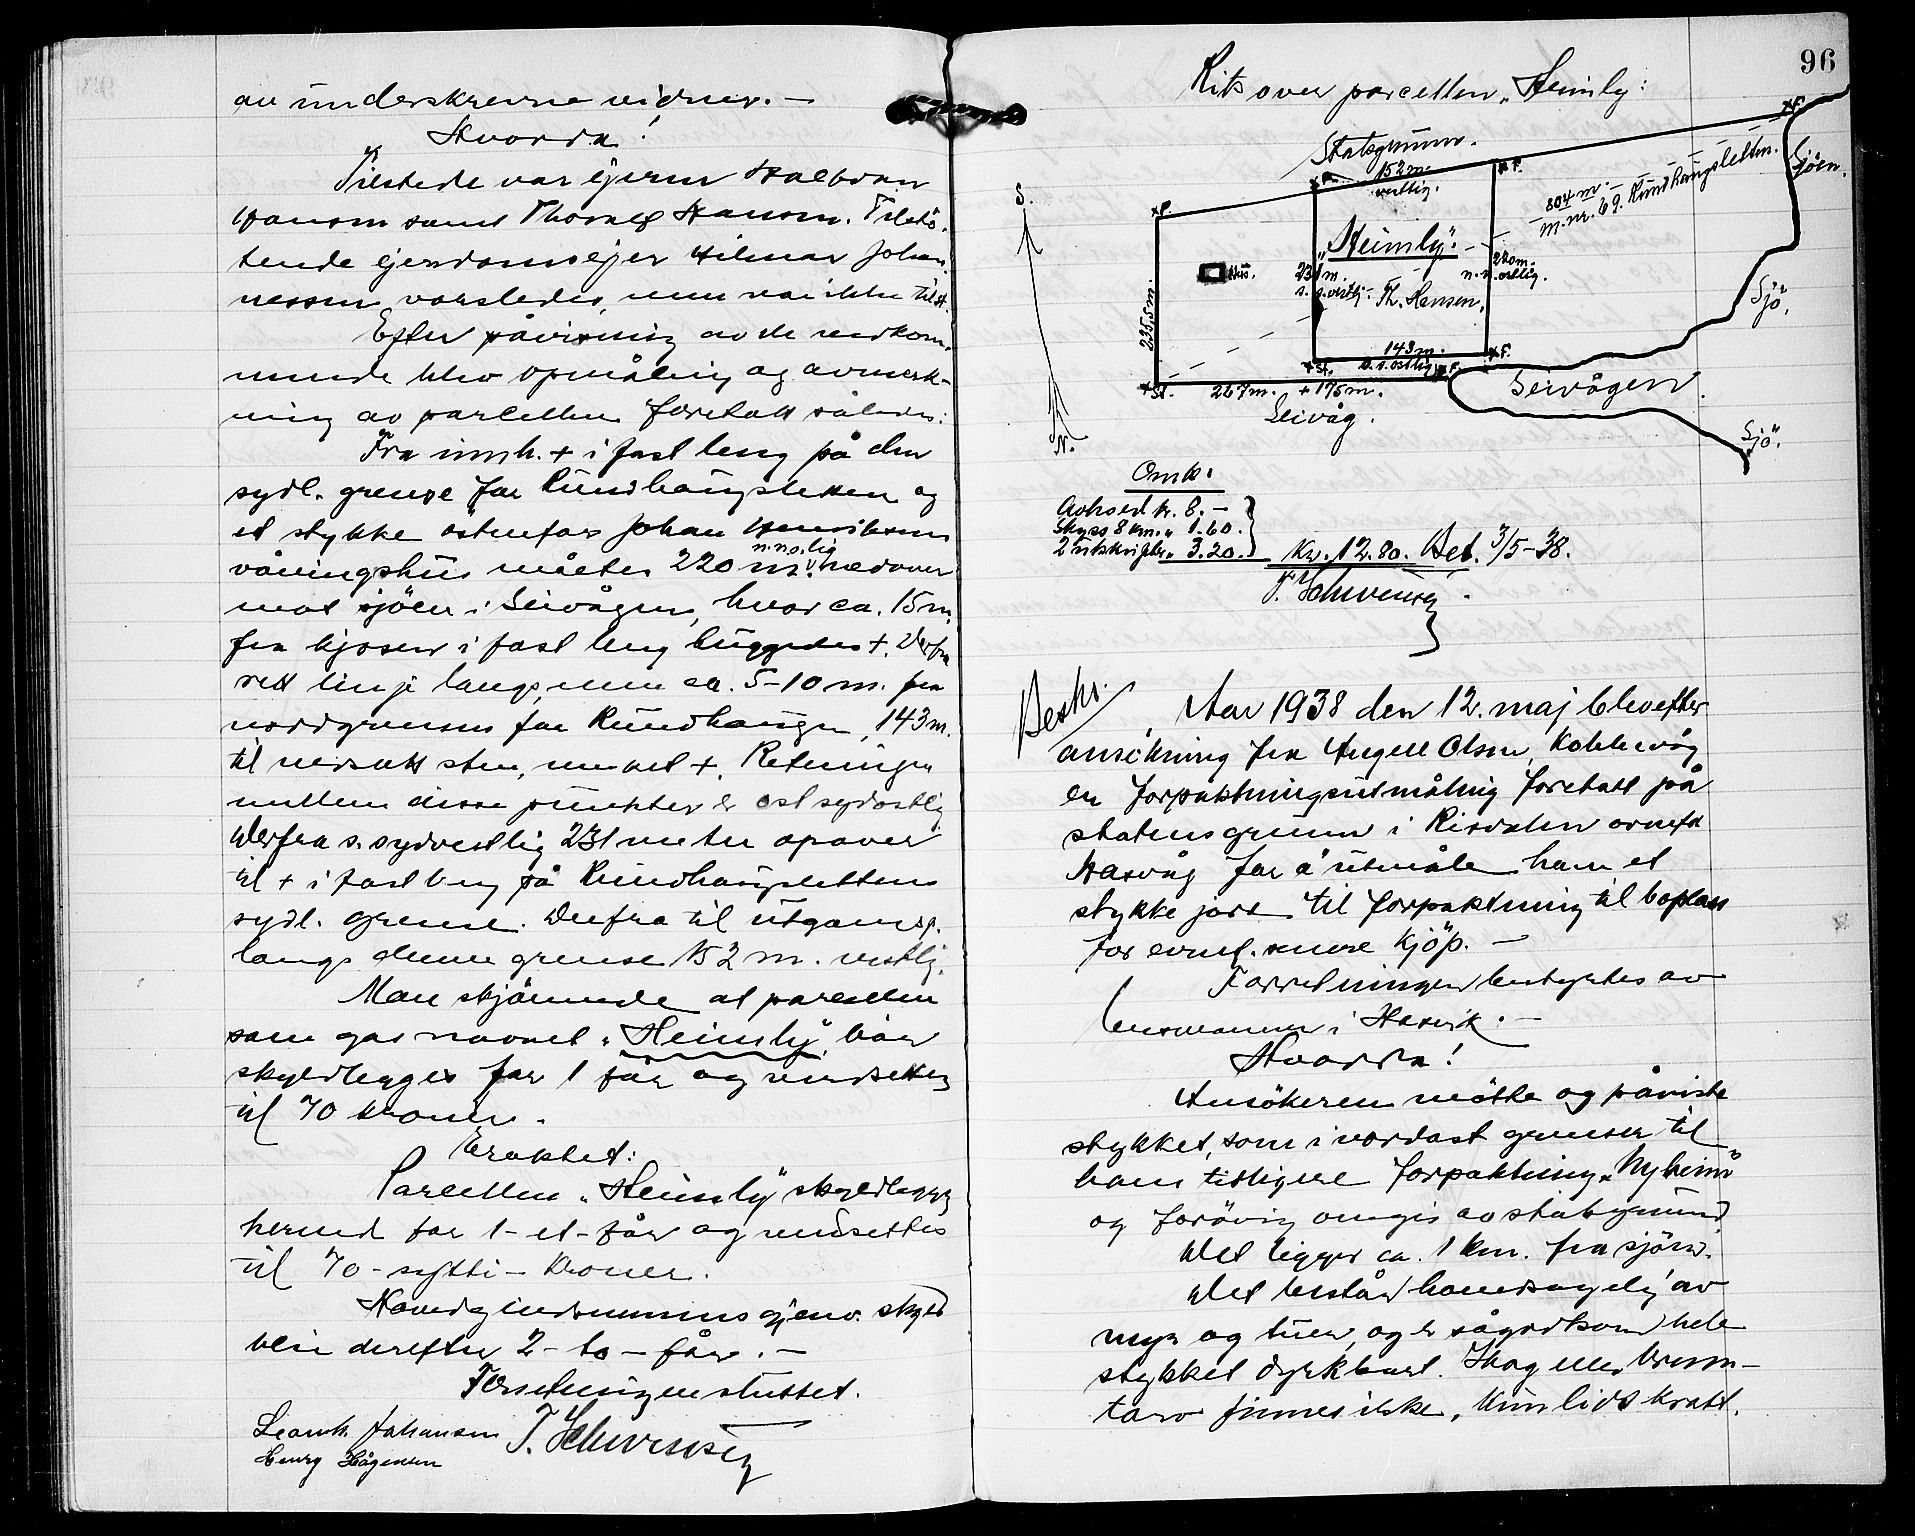 av underskrevne vidner. —
Hvorda!
Tilstede var ejeren Halvdan
Hansen samt Thoralf Hansen. Tilstö-
tende ejendomsejer Hilmar Johan-
nessen varsledes, men var ikke tilst.
Efter påvisning av de vedkom-
mende blev opmåling og avmerk-
ning av parcellen foretatt således:
Fra innh. + i fast berg på den
sydl. grense for Rundhaugsletten og
et stykke östenfor Johan Henriksens
n.n.o.lig
våningshus måltes 220 m. nedover
mot sjöen i Seivågen, hvor ca. 15 m.
fra kjosen i fast berg huggedes +. Derfra
rett linje langs, men ca. 5-10 m. fra
nordgrensen for Rundhaugen, 143 m.
til nedsatt sten, merket +. Retningen
mellem disse punkter er ost sydostlig
Derfra s. sydvestlig 231 meter opover
til + i fast berg på Rundhaugslettens
sydl. grense. Derfra til utgangsp.
langs denne grense 152 m. vestlig.
Man skjönnede at parcellen
som gas navnet „Heimly" bör
skyldlegges for 1 får og verdsettes
til 70 kroner.
Eraktet:
Parcellen „Heimly" skyldlegges
herved for 1 - et - får og verdsettes
til 70 - sytti - kroner.
Hovedejendommens gjenv. skyld
blir derefter 2 - to - får. —
Forretningen sluttet.
Leonh. Johansen T. Schwensen
Henry Hågensen
96
Rits over parcellen „Heimly:
Statsgrunn.
152 m.
vestlig.
804 m.
m.nr. 69. Rundhaugsletten.
Sjöen.
S.
„Heimly"
Hus.
231 m.
s.s.vestlig.
Th. Hansen.
220 m.
n.n.ostlig.
Sjö.
235,5 m.
143 m.
o.s.ostlig
+ St.
267 m. + 175 m.
Seivåg.
Seivågen.
Sjö.
N.
Omk:
Avholdt kr. 8. —
Skyss 8 km. „ 1.60.
2 utskrifter „ 3.20.
Kr. 12.80. Bet. 3/5-38.
T. Schwensen
Beskr.
Aar 1938 den 12. maj blev efter
ansökning fra Angell Olsen, Kobbevåg
en forpaktningsutmåling foretatt på
statens grunn i Risdalen ovenfor
Hasvåg for å utmåle ham et
stykke jord til forpaktning til boplass
for evnt. senere kjöp. —
Forretningen bestyrtes av
lensmannen i Hasvik. —
Hvorda!
Ansökeren mötte og påviste
stykket, som i nordost grenser til
hans tidligere forpaktning „Nyheim"
og forövrig omgis av statsgrunn
Det ligger ca. 1 km. fra sjöen.
Det består hovedsagelig av
myr og tuer, og er sågodtsom hele
stykket dyrkbart. Skog eller brenn-
torv finnes ikke, kun lidt kratt.